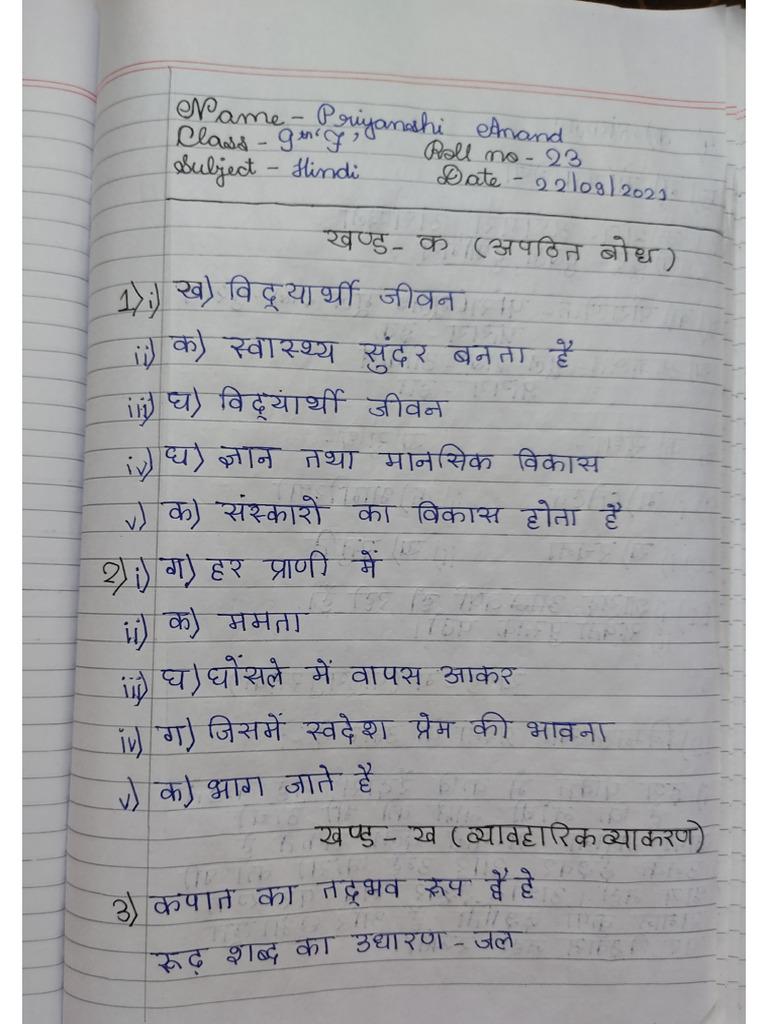 Name - Priyanshi Anand
Class - 9th 'F' Roll no - 23
Subject - Hindi Date - 22/09/2021
खण्ड - क (अपठित बोध)
1) i) ख) विद्यार्थी जीवन
ii) क) स्वास्थ्य सुंदर बनता है
iii) घ) विद्यार्थी जीवन
iv) घ) ज्ञान तथा मानसिक विकास
v) क) संस्कारों का विकास होता है
2) i) ग) हर प्राणी में
ii) क) ममता
iii) घ) घोंसले में वापस आकर
iv) ग) जिसमें स्वदेश प्रेम की भावना
v) क) भाग जाते है
खण्ड - ख (व्यावहारिक व्याकरण)
3) कपात का तद्भव रूप है
रूढ़ शब्द का उधारण - जल